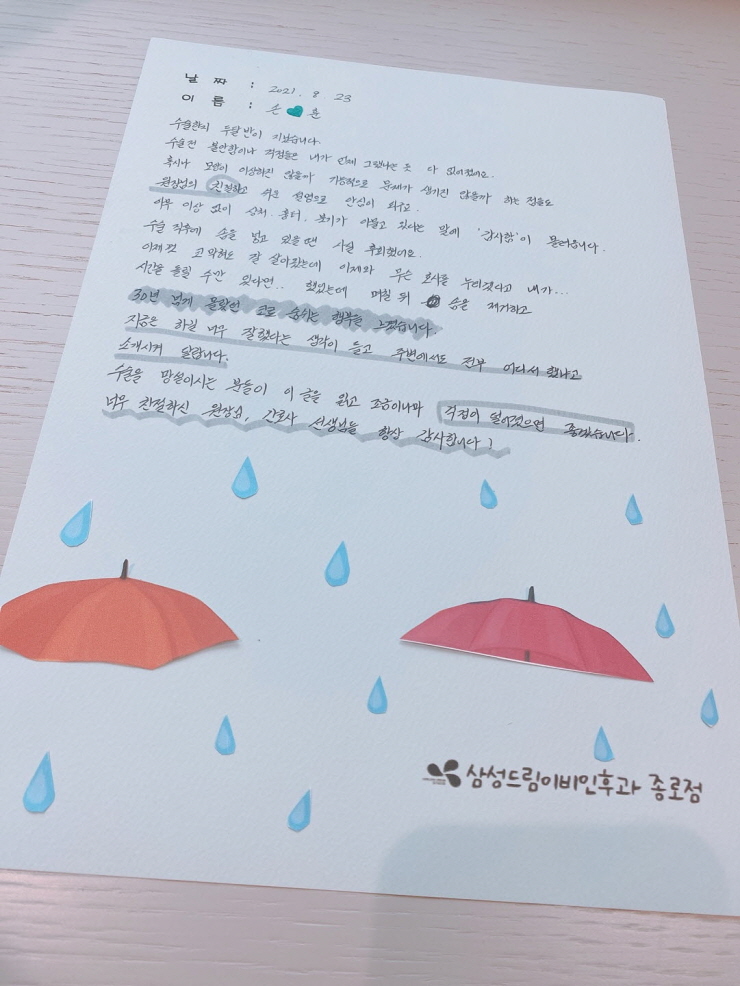 날 짜 : 2021. 8 23
이 름 : 손 윤
수술한지 두달 반이 지났습니다.
수술전 불안함이나 걱정들은 내가 언제 그랬냐는 듯 다 없어졌어요.
혹시나 모양이 이상하진 않을까 기능적으로 문제가 생기진 않을까 하는 점들도
원장님의 친절하고 쉬운 설명으로 안심이 되구요.
아무 이상 없이 상처, 흉터, 붓기가 아물고 있다는 말에 '감사함'이 몰려옵니다.
수술 직후에 솜을 넣고 있을 땐 사실 후회했어요.
이제껏 코 막혀도 잘 살아왔는데 이제와 무슨 호사를 누리겠다고 내가...
시간을 돌릴 수만 있다면.. 했었는데 며칠 뒤 솜을 제거하고
30년 넘게 몰랐던 코로 숨쉬는 행복을 느꼈습니다.
지금은 하길 너무 잘했다는 생각이 들고 주변에서도 전부 어디서 했냐고
소개시켜 달랍니다.
수술을 망설이시는 분들이 이 글을 읽고 조금이나마 걱정이 덜어졌으면 좋겠습니다.
너무 친절하신 원장님, 간호사 선생님들 항상 감사합니다!
삼성드림이비인후과 종로점